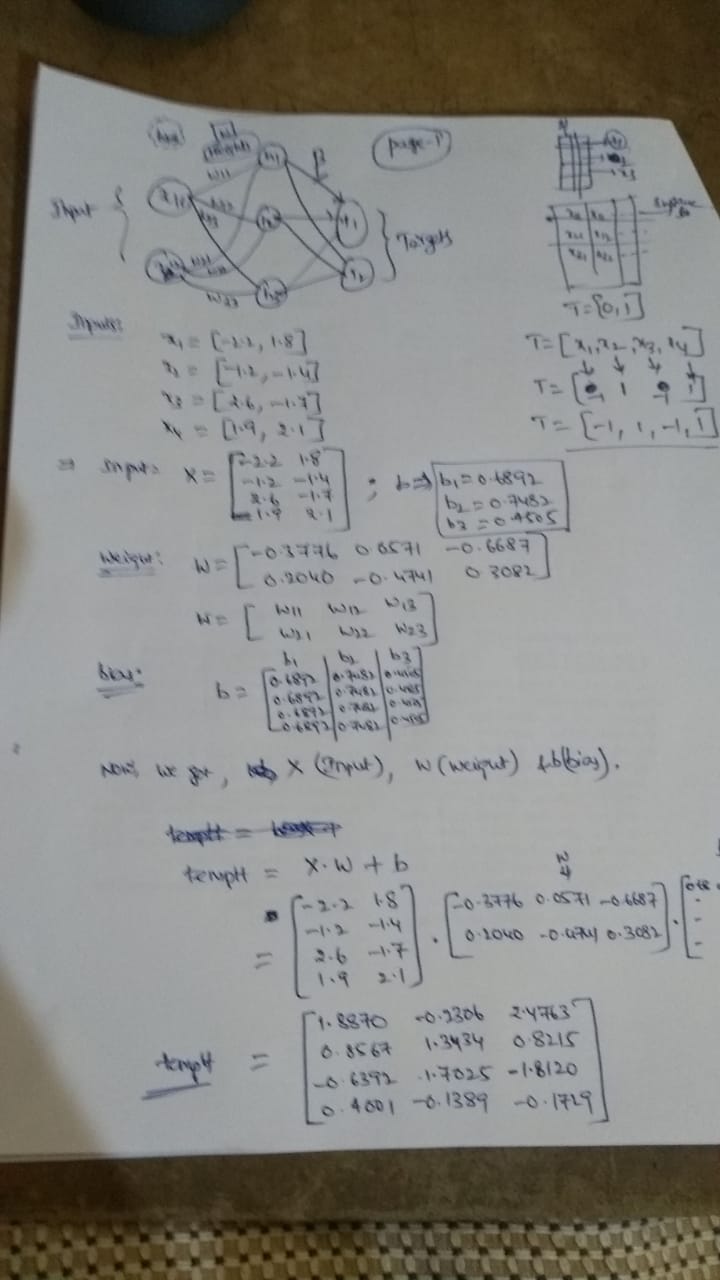 page-1
[W]
weights
w11
h1
β
x1
Input {
} Targets
t1
t2
w23
T=[0,1]
Inputs:
x1 = [-2.2, 1.8]
x2 = [-1.2, -1.4]
x3 = [2.6, -1.7]
x4 = [1.9, 2.1]
T=[x1, x2, x3, x4]
↓ ↓ ↓ ↓
T= [-1, 1, -1, 1]
⇒ Input: X = [-2.2 1.8
-1.2 -1.4
2.6 -1.7
1.9 2.1] ; b⇒
b1=0.6892
b2=0.7482
b3=0.4505
Weight: W= [-0.3776 0.0571 -0.6687
0.2040 -0.4741 0.3082]
W= [w11 w12 w13
w21 w22 w23]
bias:
b1 b2 b3
b= [0.6892 0.7482
0.6892 0.7482
0.6892 0.7482
0.6892 0.7482
Now, we got, X (Input), W (weight) & b(bias).
tempH = X.W + b
W
↓
= [-2.2 1.8
-1.2 -1.4
2.6 -1.7
1.9 2.1] . [-0.3776 0.0571 -0.6687
0.2040 -0.4741 0.3082] . [
tempH = [1.8870 -0.2306 2.4763
0.8567 1.3434 0.8215
-0.6392 1.7025 -1.8120
0.4001 -0.1389 -0.1729]